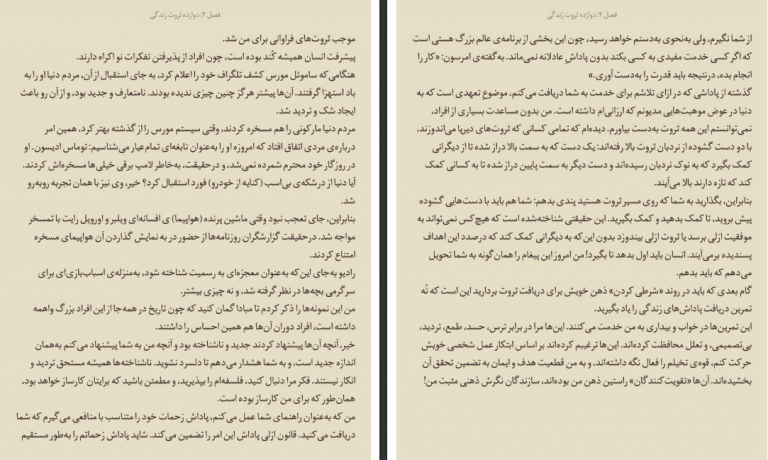 فصل ۲: دوازده ثروت زندگی
موجب ثروت‌های فراوانی برای من شد.
پیشرفت انسان همیشه کُند بوده است، چون افراد از پذیرفتن تفکرات نو اکراه دارند.
هنگامی‌که ساموئل مورس کشف تلگراف خود را اعلام کرد، به جای استقبال از آن، مردم دنیا او را به
باد استهزا گرفتند. آن‌ها پیشتر هرگز چنین چیزی ندیده بودند. نامتعارف و جدید بود، و از آن رو باعث
ایجاد شک و تردید شد.
مردم دنیا مارکونی را هم مسخره کردند، وقتی سیستم مورس را از گذشته بهتر کرد، همین امر
درباره‌ی مردی اتفاق افتاد که امروزه او را به‌عنوان نابغه‌ای تمام‌عیار می‌شناسیم: توماس ادیسون. او
در روزگار خود محترم شمرده نمی‌شد، و درحقیقت، به‌خاطر لامپ برقی خیلی‌ها مسخره‌اش کردند.
آیا دنیا از درشکه‌ی بی‌اسب (کنایه از خودرو) فورد استقبال کرد؟ خیر، وی نیز با همان تجربه روبه‌رو
شد.
بنابراین، جای تعجب نبود وقتی ماشین پرنده (هواپیما) ی افسانه‌ای ویلبر و اورویل رایت با تمسخر
مواجه شد. درحقیقت گزارشگران روزنامه‌ها از حضور در به نمایش گذاردن آن هواپیمای مسخره
امتناع کردند.
رادیو به‌جای این‌که به‌عنوان معجزه‌ای به رسمیت شناخته شود، به‌منزله‌ی اسباب‌بازی‌ای برای
سرگرمی بچه‌ها در نظر گرفته شد، و نه چیزی بیشتر.
من این نمونه‌ها را ذکر کردم تا مبادا گمان کنید که چون تاریخ در همه‌جا از این افراد بزرگ واهمه
داشته است، افراد دوران آن‌ها هم همین احساس را داشتند.
خیر، آنچه آن‌ها پیشنهاد کردند جدید و ناشناخته بود و آنچه من به شما پیشنهاد می‌کنم به‌همان
اندازه جدید است، و به شما هشدار می‌دهم تا دلسرد نشوید. ناشناخته‌ها همیشه مستحق تردید و
انکار نیستند. فکر مرا دنبال کنید، فلسفه‌ام را بپذیرید، و مطمئن باشید که برایتان کارساز خواهد بود،
همان‌طور که برای من کارساز بوده است.
من که به‌عنوان راهنمای شما عمل می‌کنم، پاداش زحمات خود را متناسب با منافعی می‌گیرم که شما
دریافت می‌کنید. قانون ازلی پاداش این امر را تضمین می‌کند. شاید پاداش زحماتم را به‌طور مستقیم
فصل ۲: دوازده ثروت زندگی
از شما نگیرم، ولی به‌نحوی به‌دستم خواهد رسید، چون این بخشی از برنامه‌ی عالم بزرگ هستی است
که اگر کسی خدمت مفیدی به کسی بکند بدون پاداش عادلانه نمی‌ماند. به‌گفته‌ی امرسون: «کار را
انجام بده، درنتیجه باید قدرت را به‌دست آوری.»
گذشته از پاداش‌ی که در ازای تلاشم برای خدمت به شما دریافت می‌کنم، موضوع تعهدی است که به
دنیا در عوض موهبت‌هایی مدیونم که ارزانی‌ام داشته است. من بدون مساعدت بسیاری از افراد،
نمی‌توانستم این همه ثروت به‌دست بیاورم. دیده‌ام که تمامی کسانی که ثروت‌های دیرپا می‌اندوزند،
با دو دست گشوده از نردبان ثروت بالا رفته‌اند: یک دست که به سمت بالا دراز شده تا از دیگرانی
کمک بگیرد که به نوک نردبان رسیده‌اند و دست دیگر به سمت پایین دراز شده تا به کسانی کمک
کند که تازه دارند بالا می‌آیند.
بنابراین، بگذارید به شما که روی مسیر ثروت هستید پندی بدهم: شما هم باید با دست‌هایی گشوده
پیش بروید، تا کمک بدهید و کمک بگیرید. این حقیقتی شناخته‌شده است که هیچ‌کس نمی‌تواند به
موفقیت ازلی برسد یا ثروت ازلی بیندوزد بدون این‌که به دیگرانی کمک کند که درصدد این اهداف
پسندیده برمی‌آیند. انسان باید اول بدهد تا بگیرد! من امروز این پیغام را همان‌گونه به شما تحویل
می‌دهم که باید بدهم.
گام بعدی که باید در روند «شرطی کردن» ذهن خویش برای دریافت ثروت بردارید این است که نُه
تمرین دریافت پاداش‌های زندگی را یاد بگیرید.
این تمرین‌ها در خواب و بیداری به من خدمت می‌کنند. این‌ها مرا در برابر ترس، حسد، طمع، تردید،
بی‌تصمیمی، و تعلل محافظت کرده‌اند. این‌ها ترغیبم کرده‌اند بر اساس ابتکار عمل شخصی خویش
حرکت کنم، قوه‌ی تخیلم را فعال نگه داشته‌اند، و به من قطعیت هدف و ایمان به تضمین تحقق آن
بخشیده‌اند. آن‌ها «تقویت‌کنندگان» راستین ذهن من بوده‌اند، سازندگان نگرش ذهنی مثبت من!